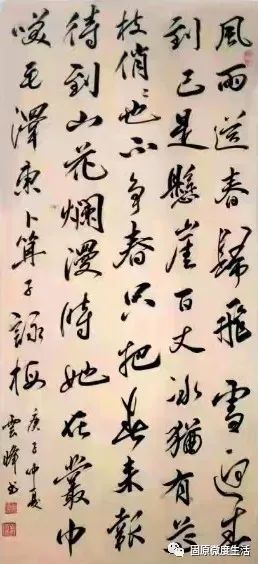 風雨送春歸飛雪迎春
到已是懸崖百丈冰猶有花
枝俏〻也不争春只把春来報
待到山花爛漫時她在叢中
咲毛澤東卜算子詠梅
庚子仲夏
雲峰书
固原微度生活